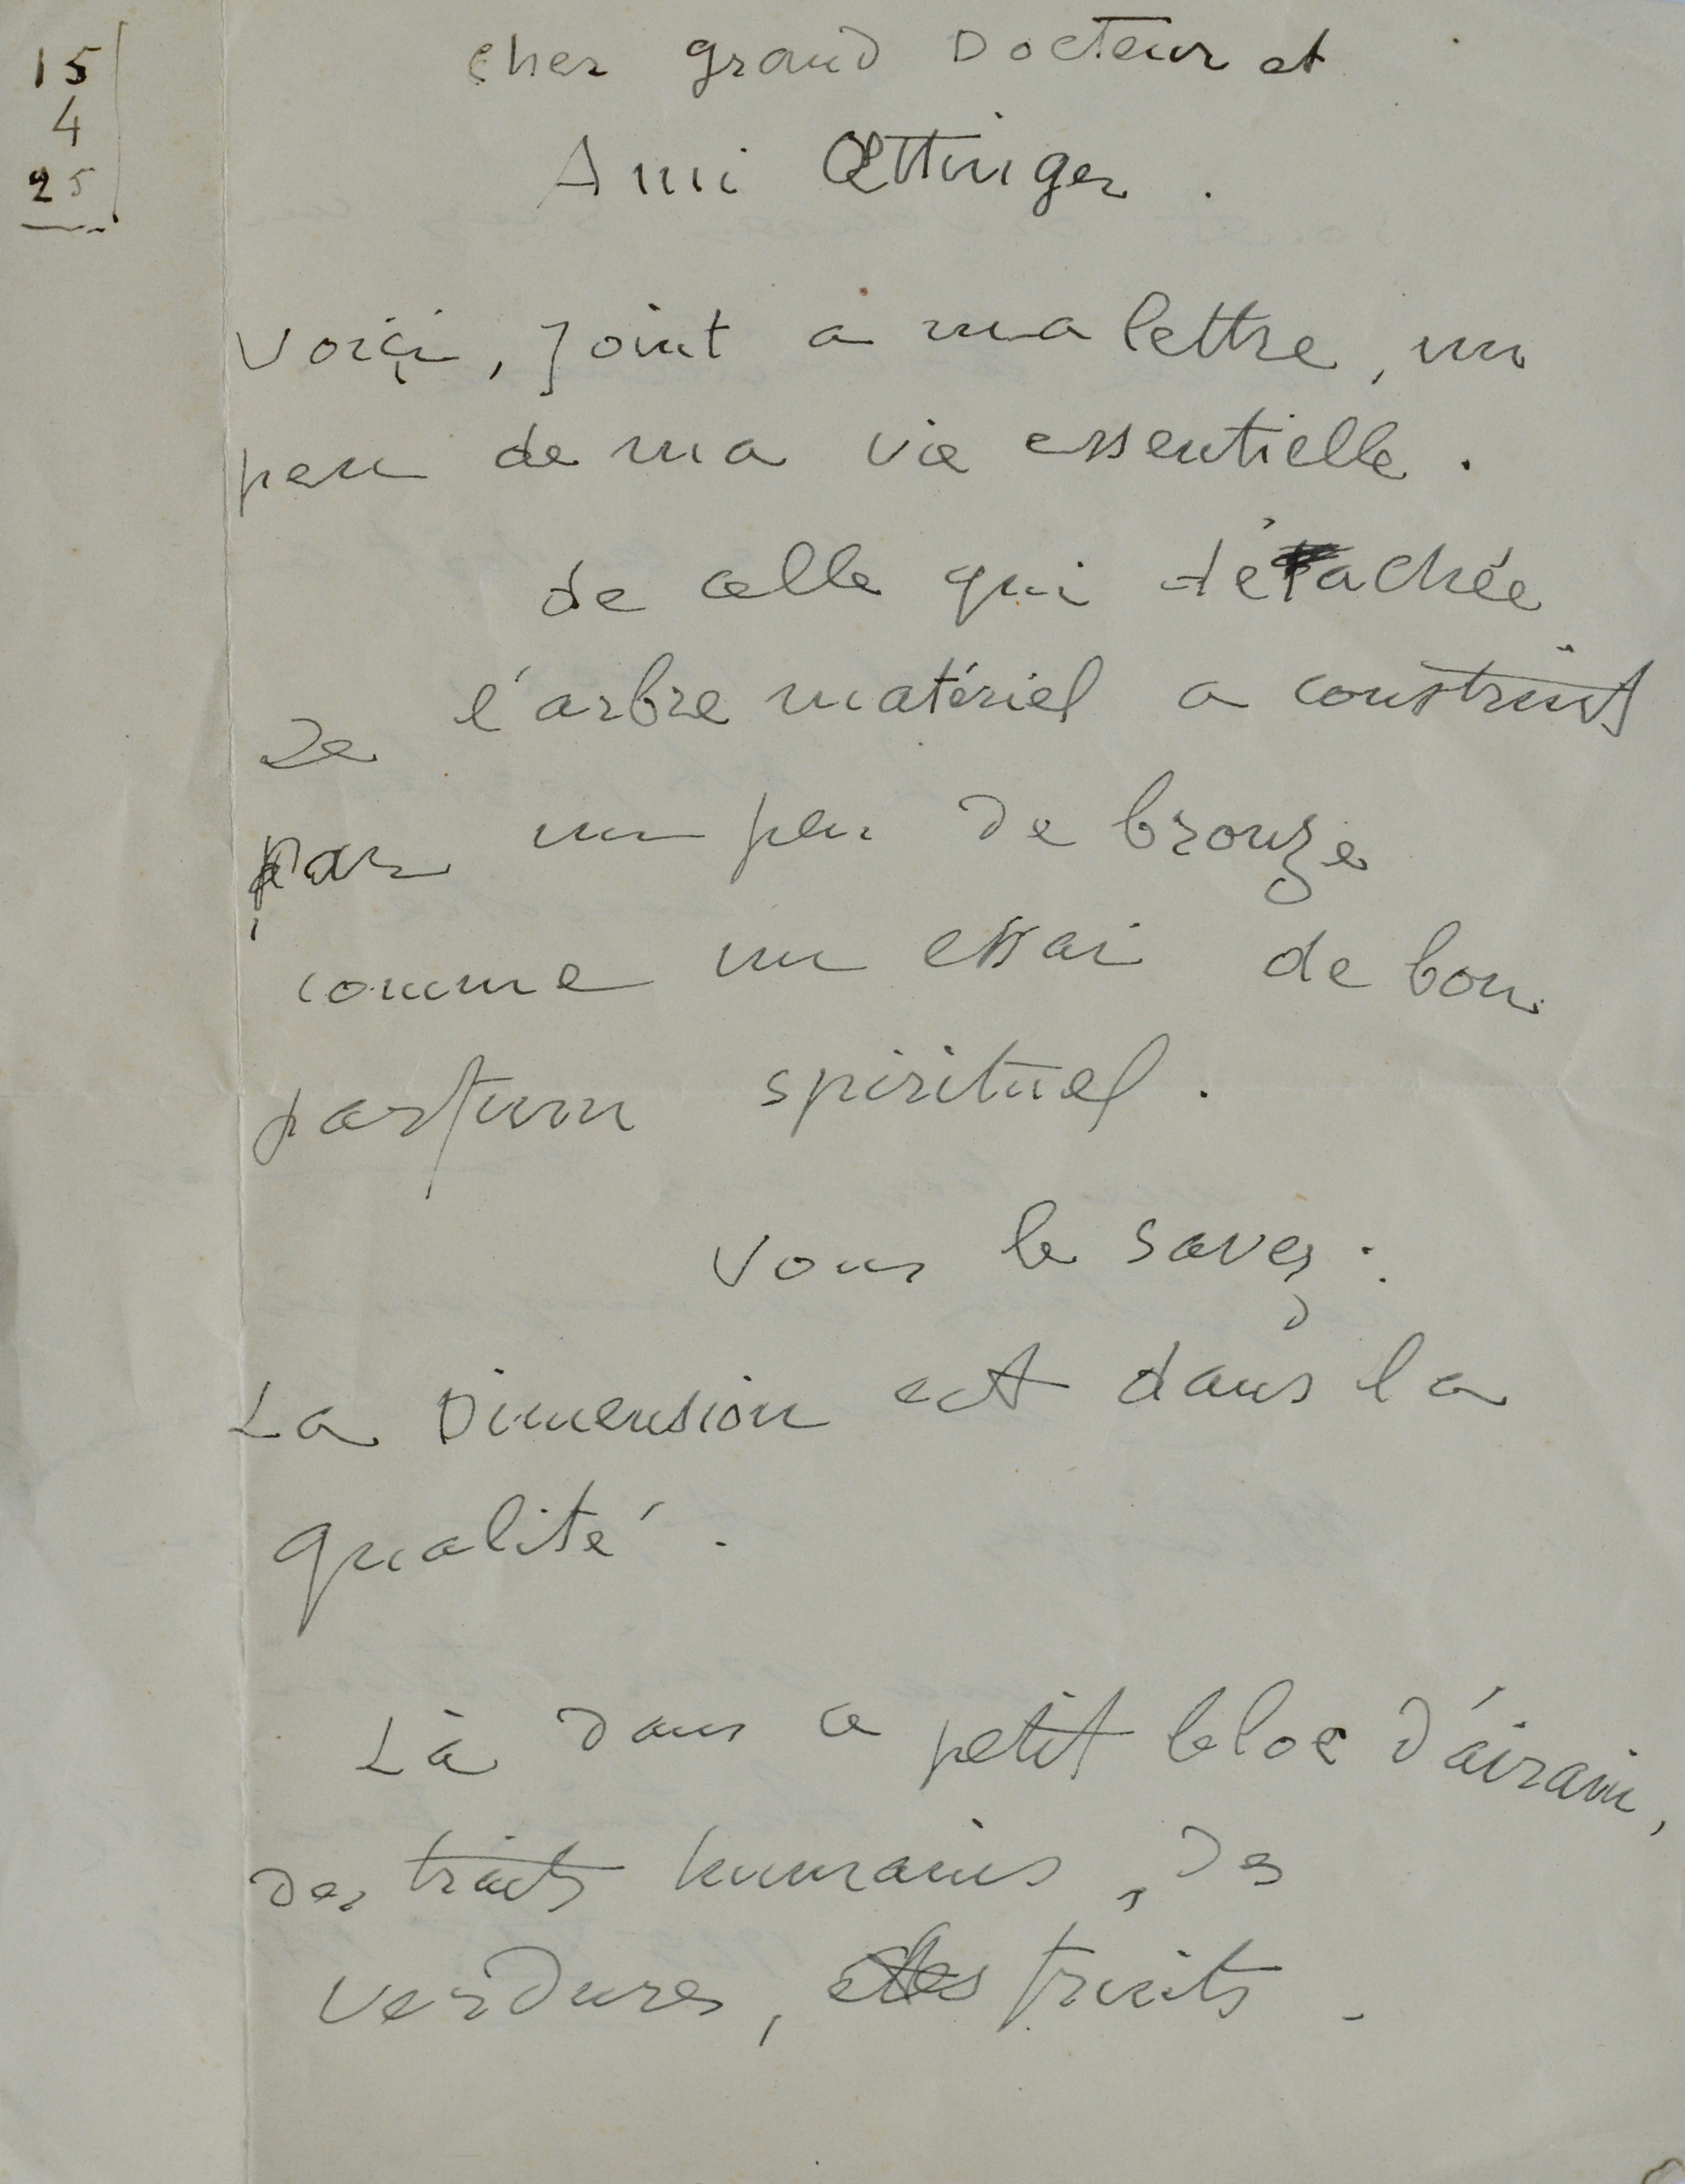 15
4
25
Cher grand Docteur et
Ami Œttinger.
Voiçi, joint a ma lettre, un
peu de ma vie essentielle.
de celle qui détachée
de l'arbre matériel a construit
par un peu de bronze
comme un essai de bon
parfum spirituel.
Vous le savez :
La Dimension est dans la
qualité.
Là dans ce petit bloc d'airain,
des traits humains, des
verdures, des fruits.